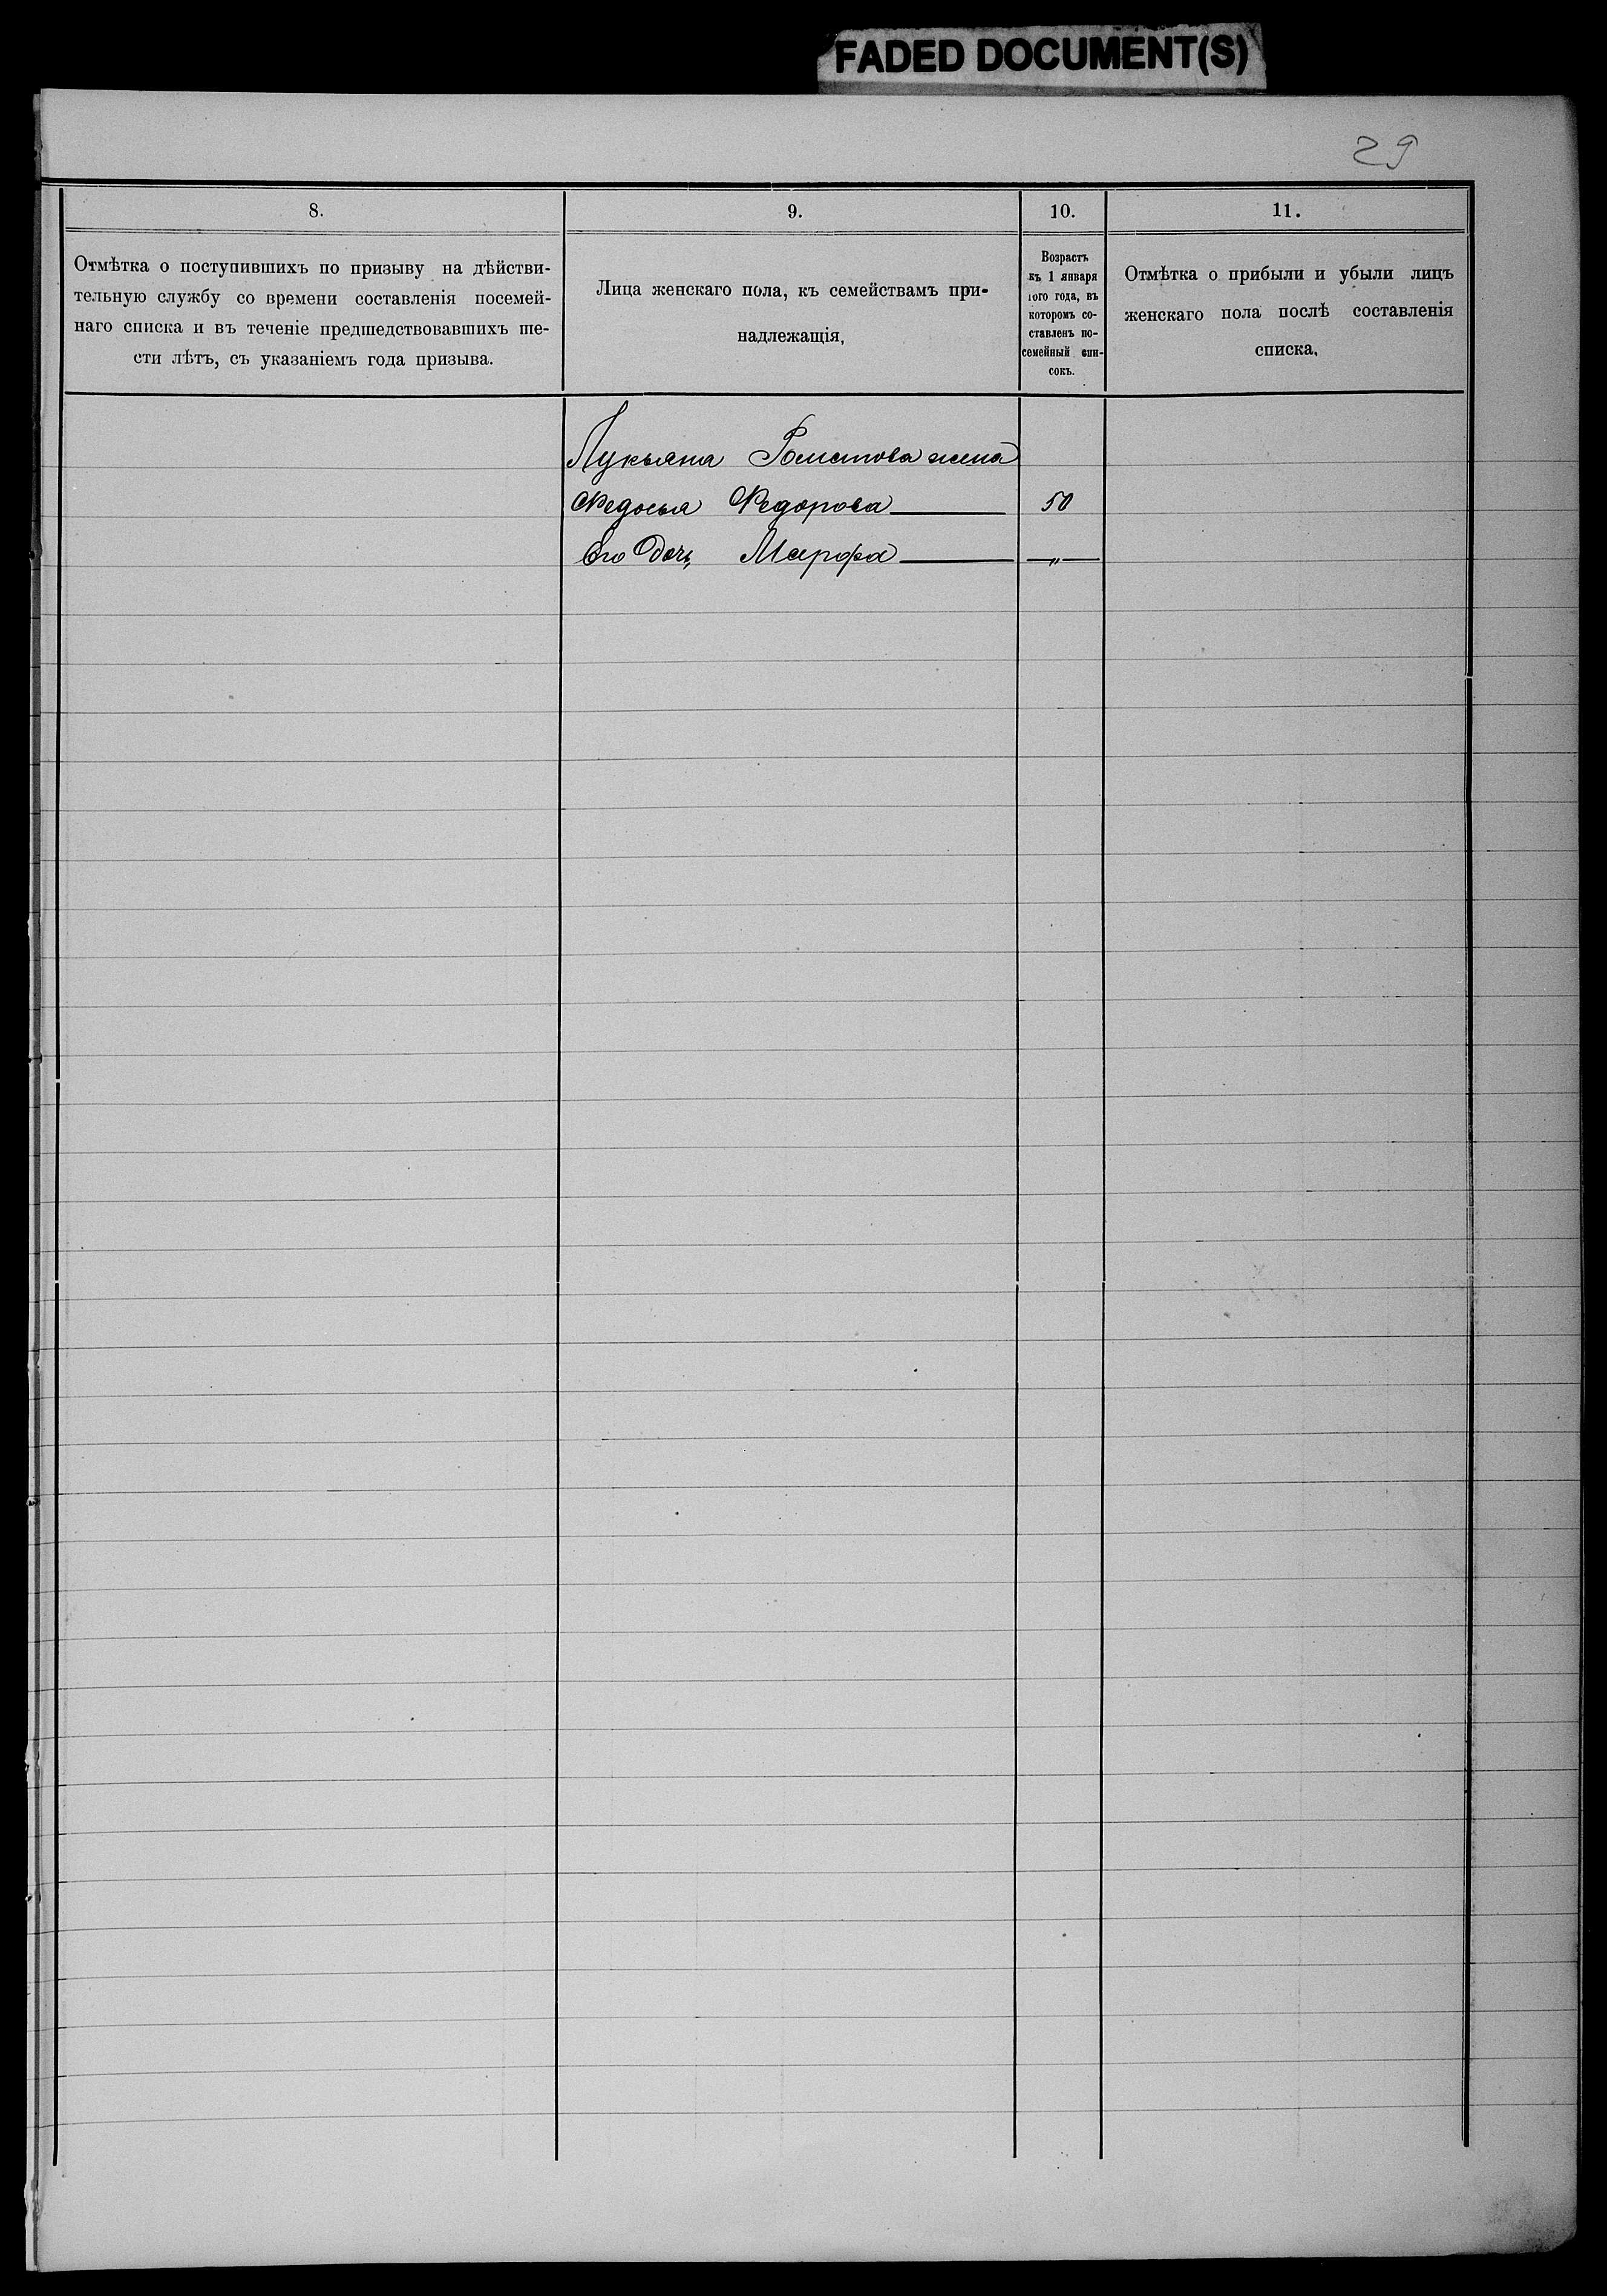 FADED DOCUMENT(S)
29
8.
9.
10.
11.
Отмѣтка о поступившихъ по призыву на дѣйстви-
тельную службу со времени составленія посемей-
наго списка и въ теченіе предшедствовавшихъ ше-
сти лѣтъ, съ указаніемъ года призыва.
Лица женскаго пола, къ семействамъ при-
надлежащія,
Возрастъ
къ 1 января
того года, въ
которомъ со-
ставленъ по-
семейный спи-
сокъ.
Отмѣтка о прибыли и убыли лицъ
женскаго пола послѣ составленія
списка.
Лукьяна жена
Федосья Федорова 50
Его дочь Марфа "